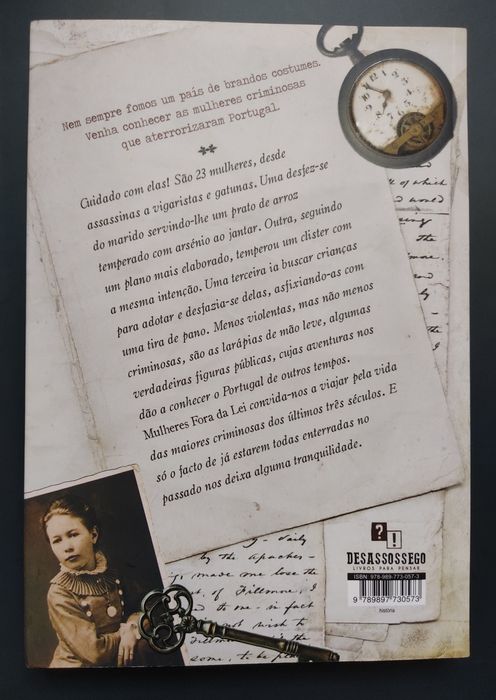 Nem sempre fomos um país de brandos costumes.
Venha conhecer as mulheres criminosas
que aterrorizaram Portugal.
Cuidado com elas! São 23 mulheres, desde
assassinas a vigaristas e gatunas. Uma desfez-se
do marido servindo-lhe um prato de arroz
temperado com arsénio ao jantar. Outra, seguindo
um plano mais elaborado, temperou um clister com
a mesma intenção. Uma terceira ia buscar crianças
para adotar e desfazia-se delas, asfixiando-as com
uma tira de pano. Menos violentas, mas não menos
criminosas, são as larápias de mão leve, algumas
verdadeiras figuras públicas, cujas aventuras nos
dão a conhecer o Portugal de outros tempos.
Mulheres Fora da Lei convida-nos a viajar pela vida
das maiores criminosas dos últimos três séculos. E
só o facto de já estarem todas enterradas no
passado nos deixa alguma tranquilidade.
of which
would
the
the Apaches-
made me lose the
of Fillmore, I
to me - in fact
not wish to
some, to be
?!
DESASSOSSEGO
LIVROS PARA PENSAR
ISBN: 978-989-773-057-3
9 789897 730573
história